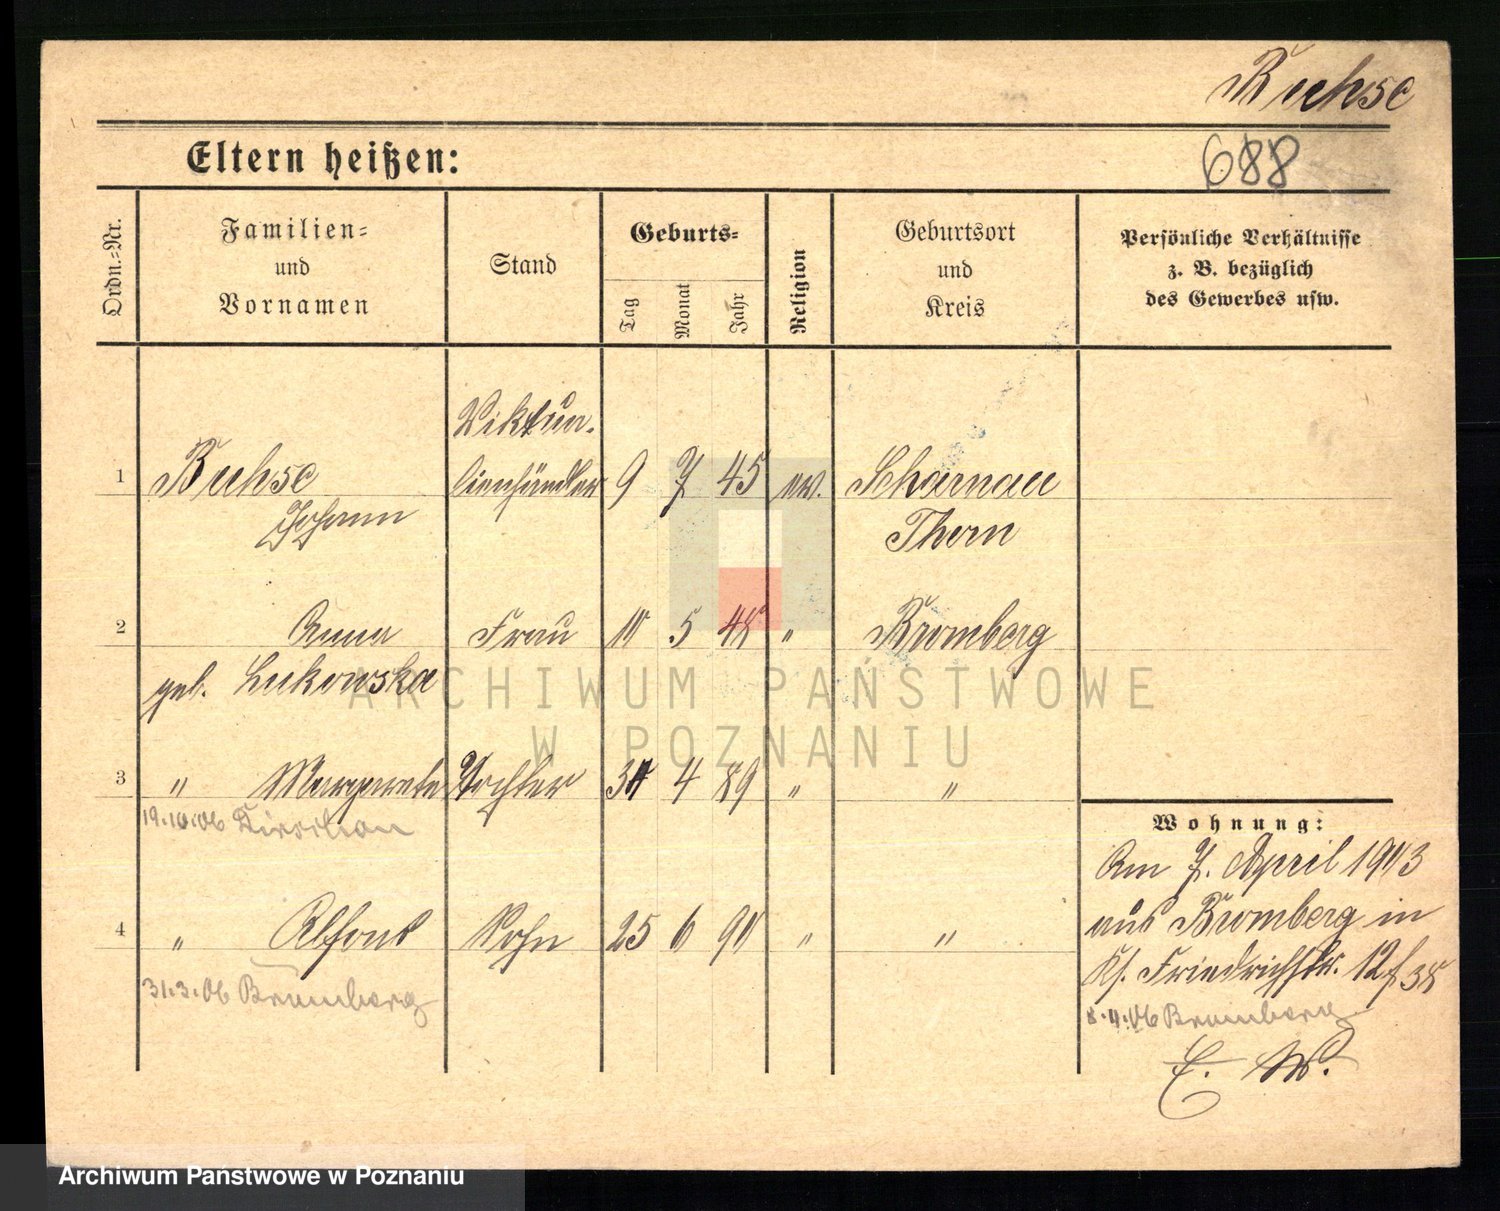 Buhse
Eltern heißen:
688
Ordn.-Nr.
Familien-
und
Vornamen
Stand
Geburts-
Tag
Monat
Jahr
Religion
Geburtsort
und
Kreis
Persönliche Verhältnisse
z. B. bezüglich
des Gewerbes usw.
Viktua-
1 Buhse lienhändler 9 7 45 ev. Scharnau
Johann Thorn
2 Anna Frau 10 5 48 " Bromberg
geb. Lukowska
3 " Margarete Tochter 30 4 89 " "
19.10.06
Wohnung:
Am 7. April 1903
4 " Alfons Sohn 25 6 90 " "
aus Bromberg in
Friedrichstr. 12
31.3.06 Bromberg
8.4.06 Bromberg
E. W.
ARCHIWUM PAŃSTWOWE
W POZNANIU
Archiwum Państwowe w Poznaniu